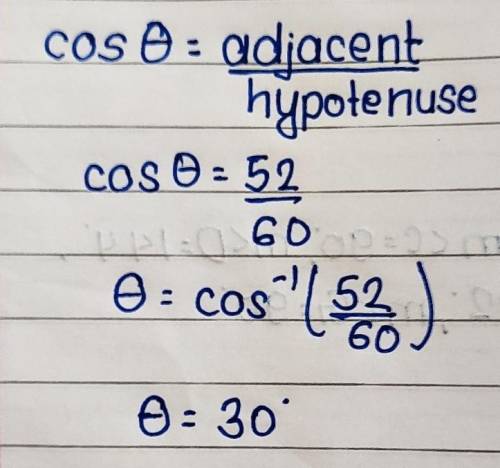 cos θ = adjacent
hypotenuse
cos θ = 52
60
θ = cos⁻¹(52
60)
θ = 30°